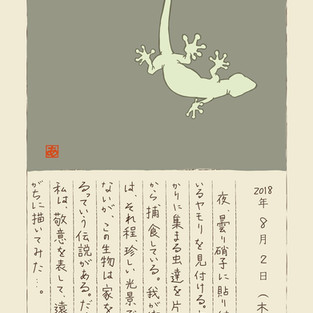 2018年8月2日(木
夜、曇り硝子に貼り
いるヤモリを見付ける。
かりに集まる虫達を片
から捕食している。我が
は、それ程、珍しい光景で
ないが、この生物は家を
るっていう伝説がある。だ
私は、敬意を表して、遠
がちに描いてみた…。